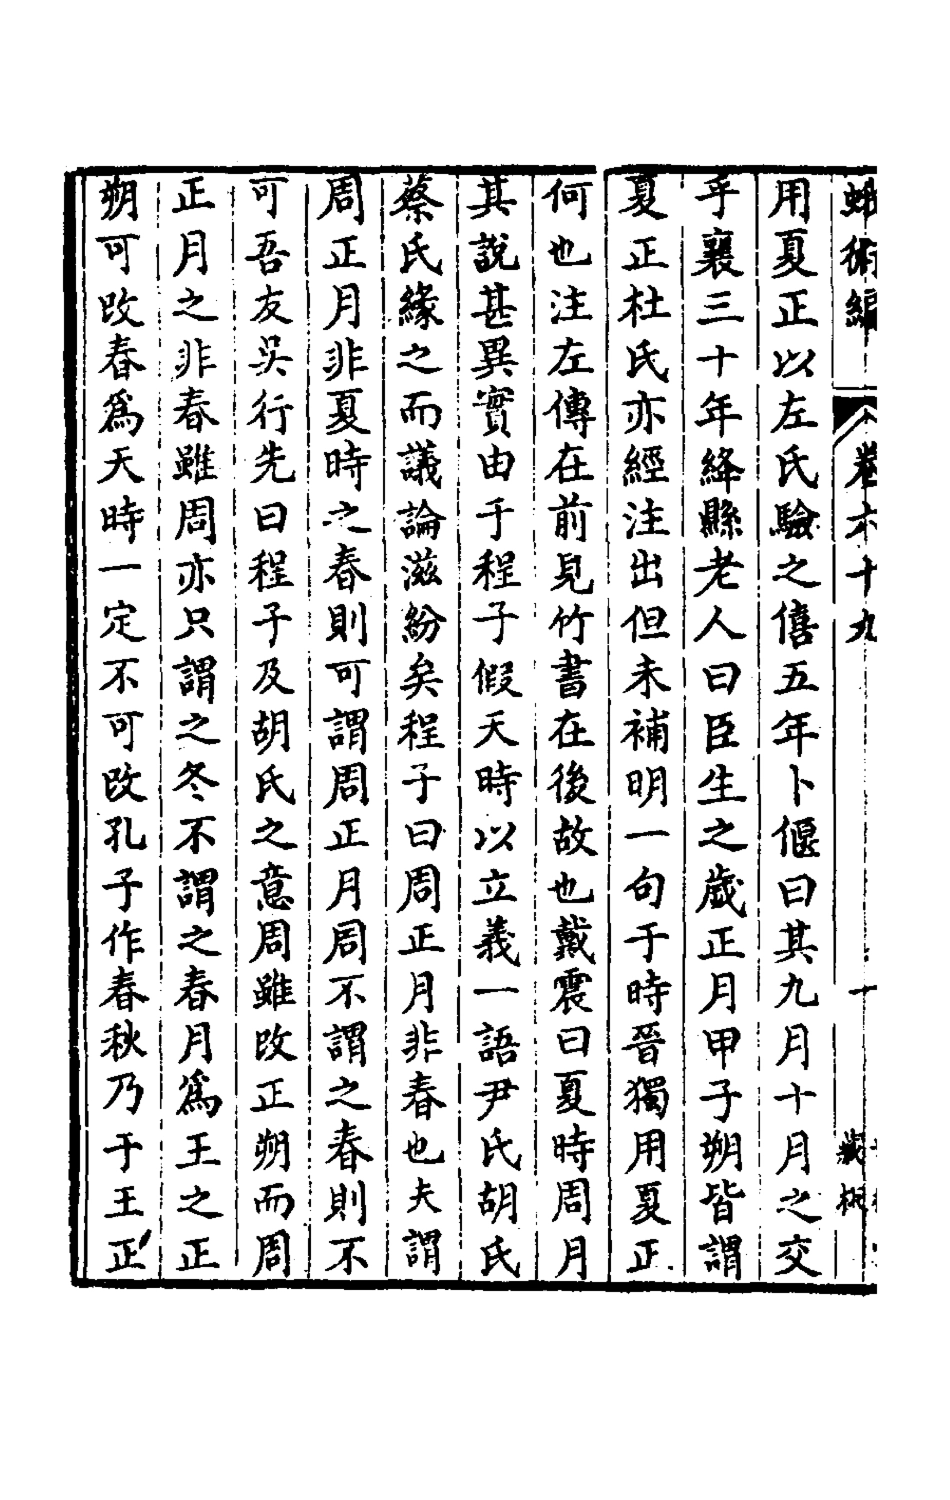 蛾術編
卷六十九
一
藏板
用夏正以左氏驗之僖五年卜偃曰其九月十月之交
乎襄三十年絳縣老人曰臣生之歲正月甲子朔皆謂
夏正杜氏亦經注出但未補明一句于時晉獨用夏正
何也注左傳在前見竹書在後故也戴震曰夏時周月
其說甚異實由于程子假天時以立義一語尹氏胡氏
蔡氏緣之而議論滋紛矣程子曰周正月非春也夫謂
周正月非夏時之春則可謂周正月周不謂之春則不
可吾友吳行先曰程子及胡氏之意周雖改正朔而周
正月之非春雖周亦只謂之冬不謂之春月爲王之正
朔可改春爲天時一定不可改孔子作春秋乃于王正